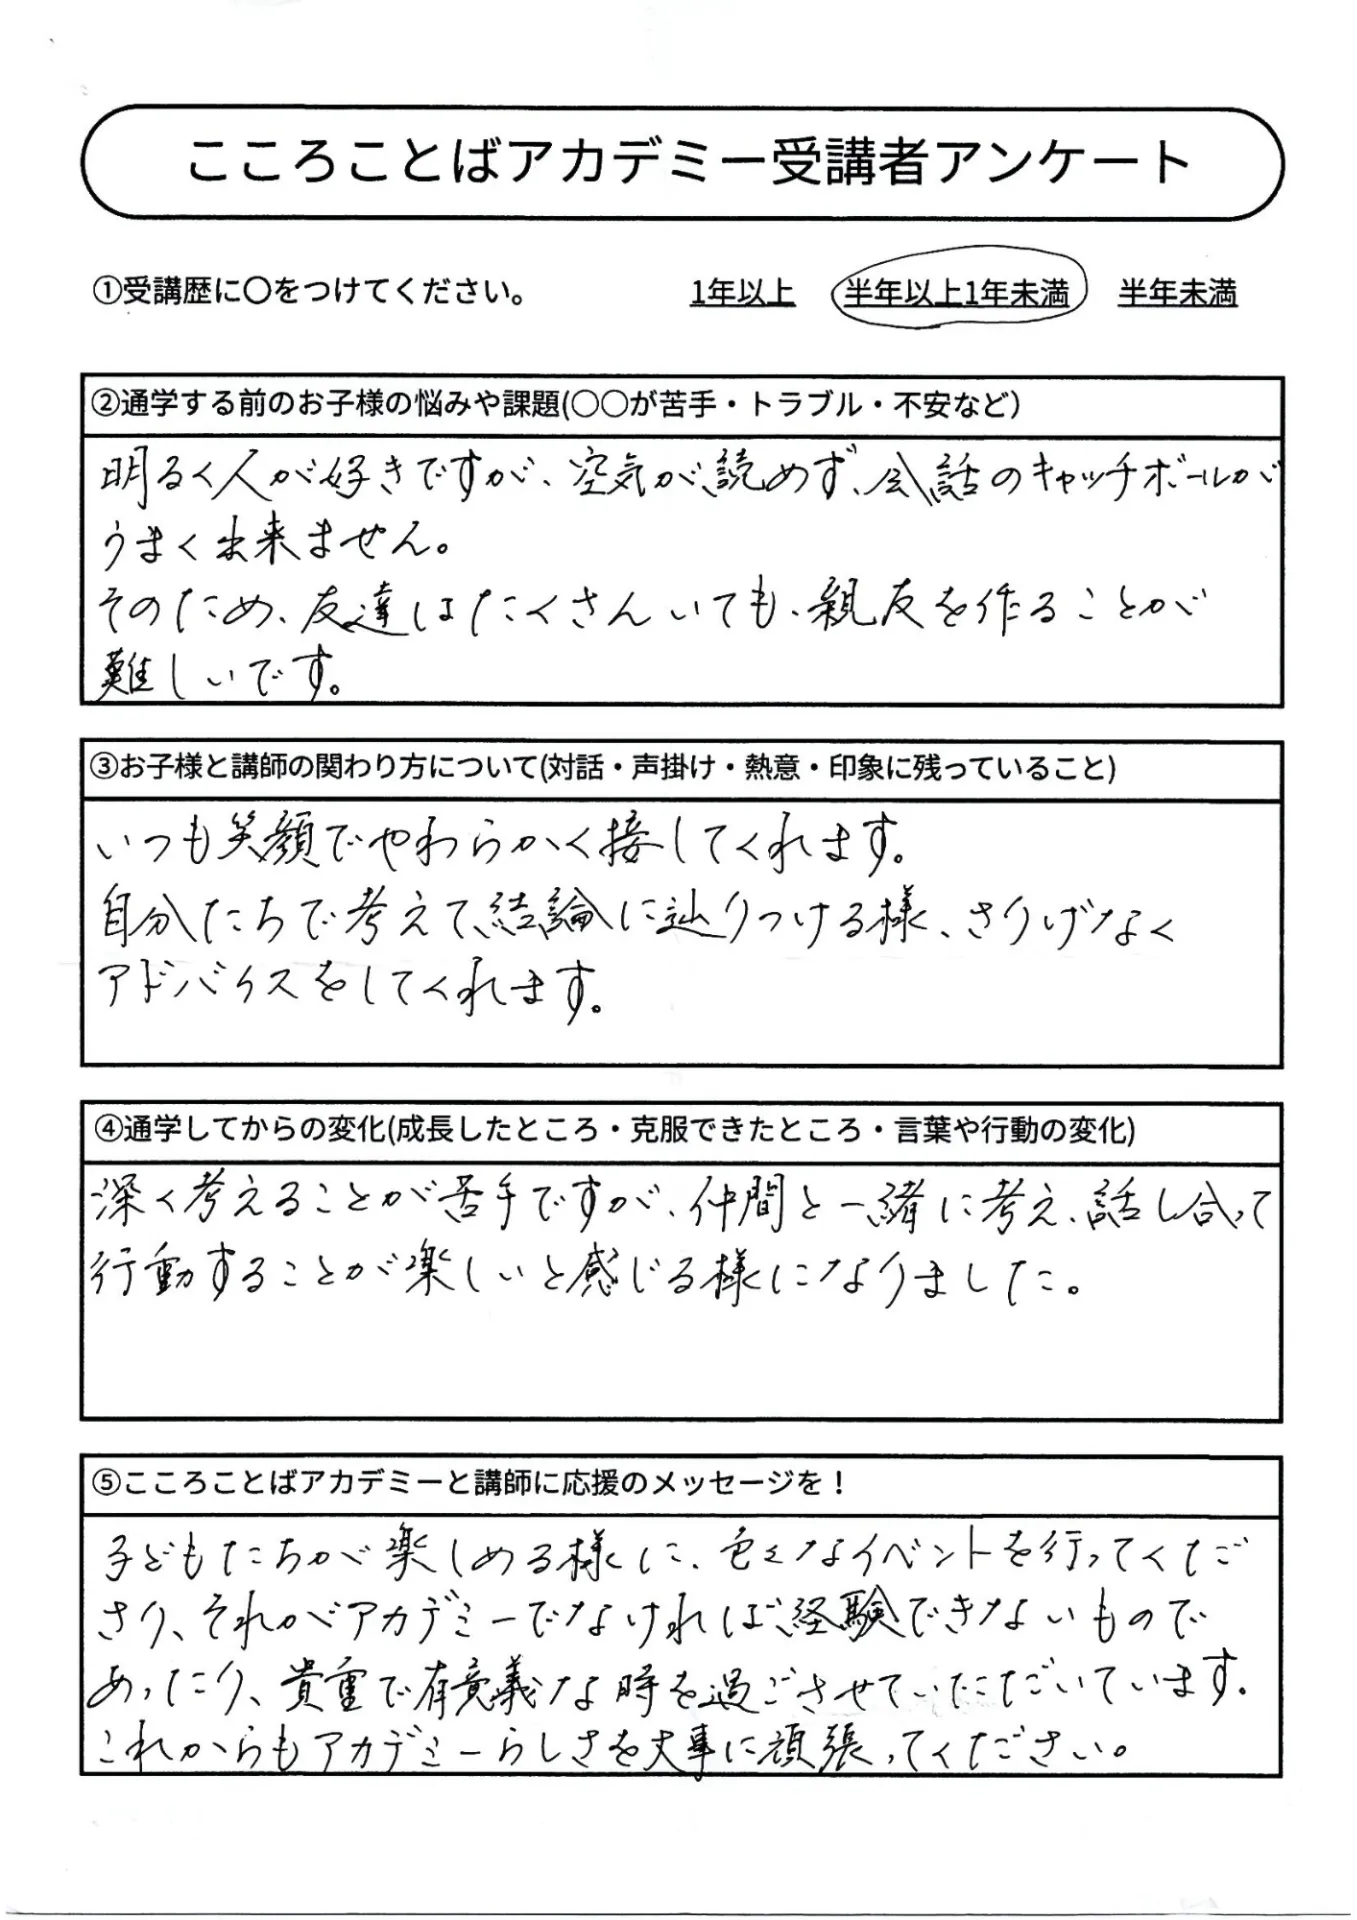 こころことばアカデミー受講者アンケート
①受講歴に〇をつけてください。 1年以上 半年以上1年未満 半年未満
②通学する前のお子様の悩みや課題(〇〇が苦手・トラブル・不安など)
明るく人が好きですが、空気が読めず、会話のキャッチボールが
うまく出来ません。
そのため、友達はたくさんいても、親友を作ることが
難しいです。
③お子様と講師の関わり方について(対話・声掛け・熱意・印象に残っていること)
いつも笑顔でやわらかく接してくれます。
自分たちで考えて、結論に辿りつける様、さりげなく
アドバイスをしてくれます。
④通学してからの変化(成長したところ・克服できたところ・言葉や行動の変化)
深く考えることが苦手ですが、仲間と一緒に考え、話し合って
行動することが楽しいと感じる様になりました。
⑤こころことばアカデミーと講師に応援のメッセージを！
子どもたちが楽しめる様に、色々なイベントを行ってくだ
さり、それがアカデミーでなければ経験できないもので
あったり、貴重で有意義な時を過ごさせていただいています。
これからもアカデミーらしさを大事に頑張ってください。